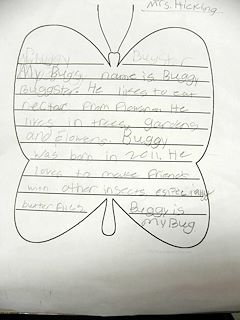 Mrs. Hickling
Buggy Buystar
My Bugs name is Buggy
Buggstar. He likes to eat
nectar from Flowers. He
lives in trees, gardens
and Flowers. Buggy
was born in 2011. He
loves to make friends
with other insects
butterflies. Buggy is
my Bug